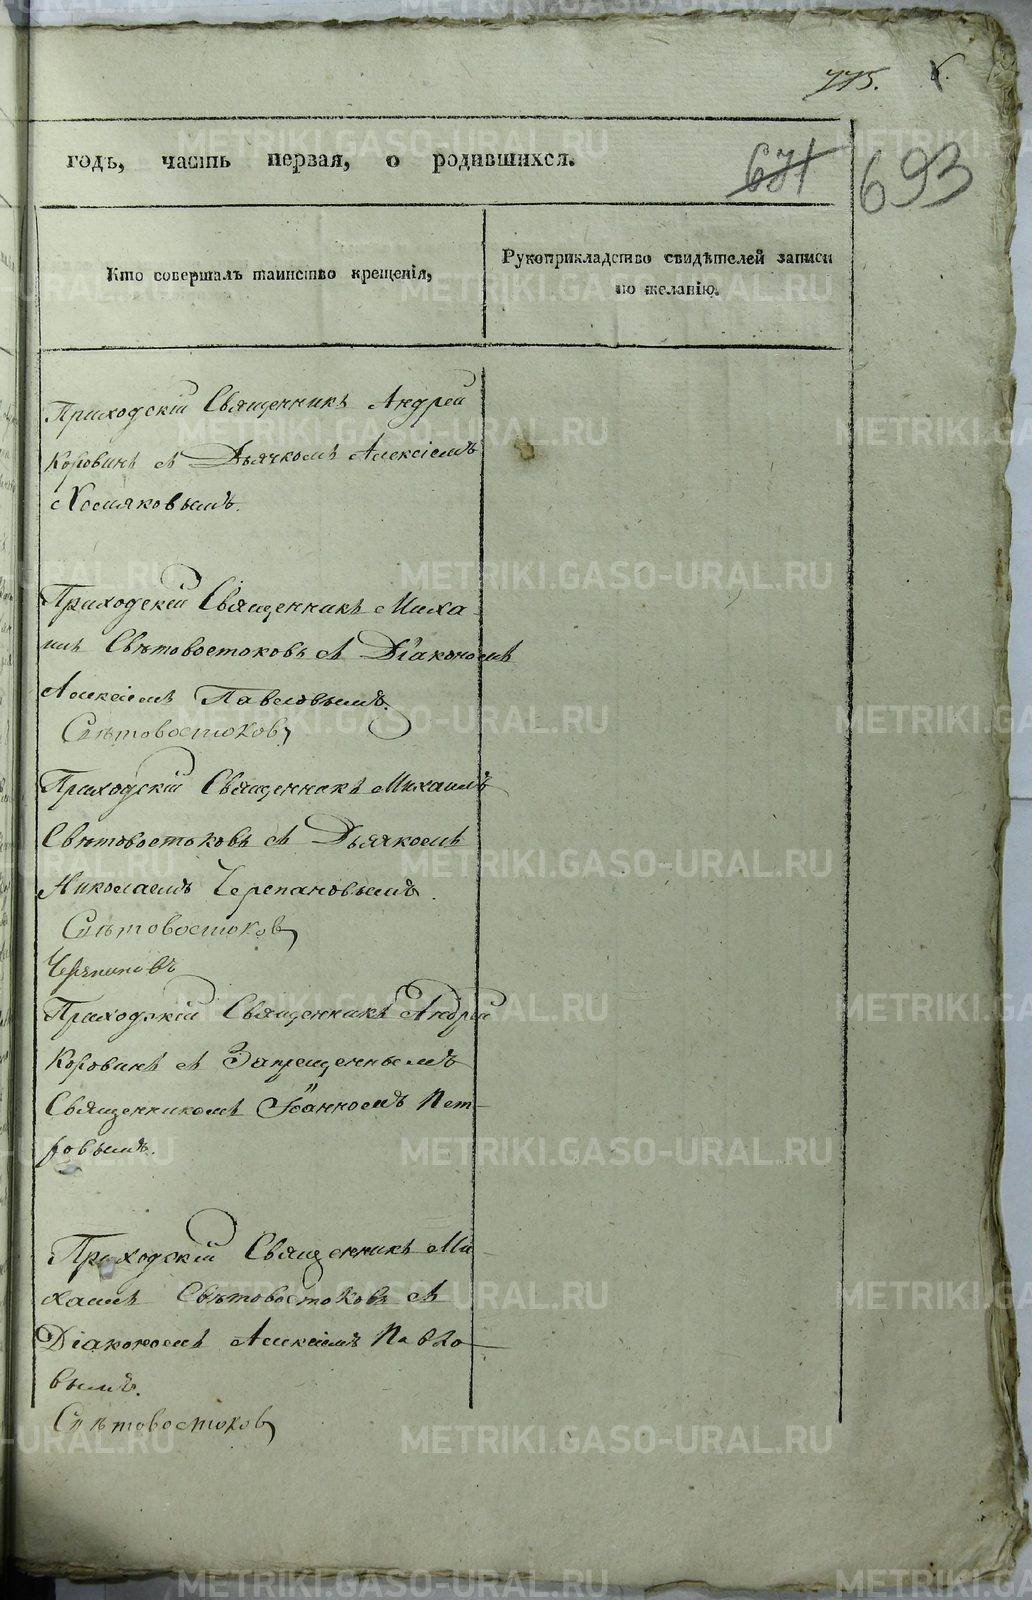 775. 6.
годъ, часть первая, о родившихся.
671 693
Кто совершалъ таинство крещенія,
Рукоприкладство свидѣтелей записи
по желанію.
Приходскій Священникъ Андрей
Коровинъ съ Дьячкомъ Алексіемъ
Хомяковымъ.
Приходскій Священникъ Миха-
илъ Свѣтовостоковъ съ Діакономъ
Алексіемъ Павловымъ.
Свѣтовостоковъ
Приходскій Священникъ Михаилъ
Свѣтовостоковъ съ Дьячкомъ
Николаемъ Черепановымъ.
Свѣтовостоковъ
Черепановъ
Приходскій Священникъ Андрей
Коровинъ съ Запрещеннымъ
Священникомъ Іоанномъ Пет-
ровымъ.
Приходскій Священникъ Ми-
хаилъ Свѣтовостоковъ съ
Діакономъ Алексіемъ Павло-
вымъ.
Свѣтовостоковъ
METRIKI.GASO-URAL.RU